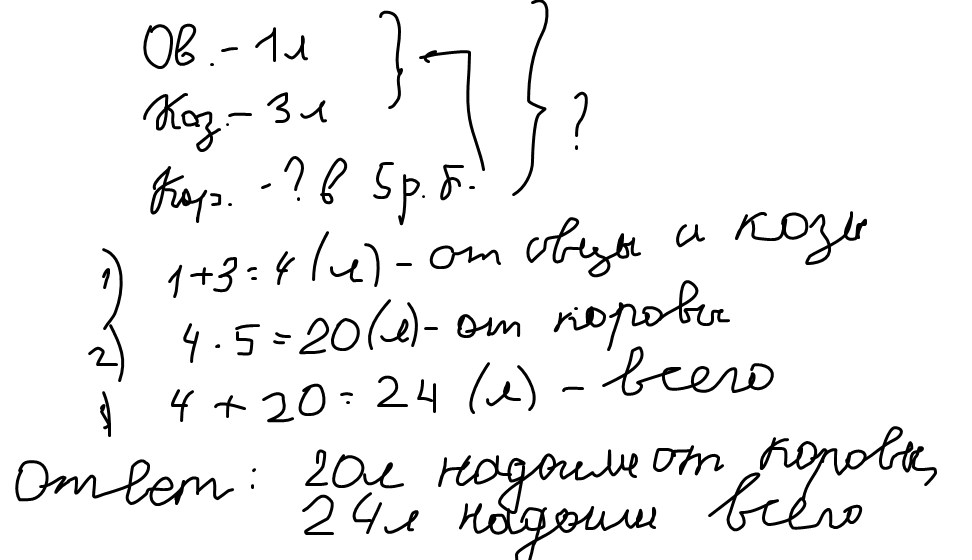 Ов. - 1л
Коз. - 3л
Кор. - ? в 5 р. б.
?
1) 1+3=4 (л) - от овцы и козы
2) 4·5=20(л)- от коровы
3) 4+20=24 (л) - всего
Ответ: 20л надоили от коровы,
24л надоили всего